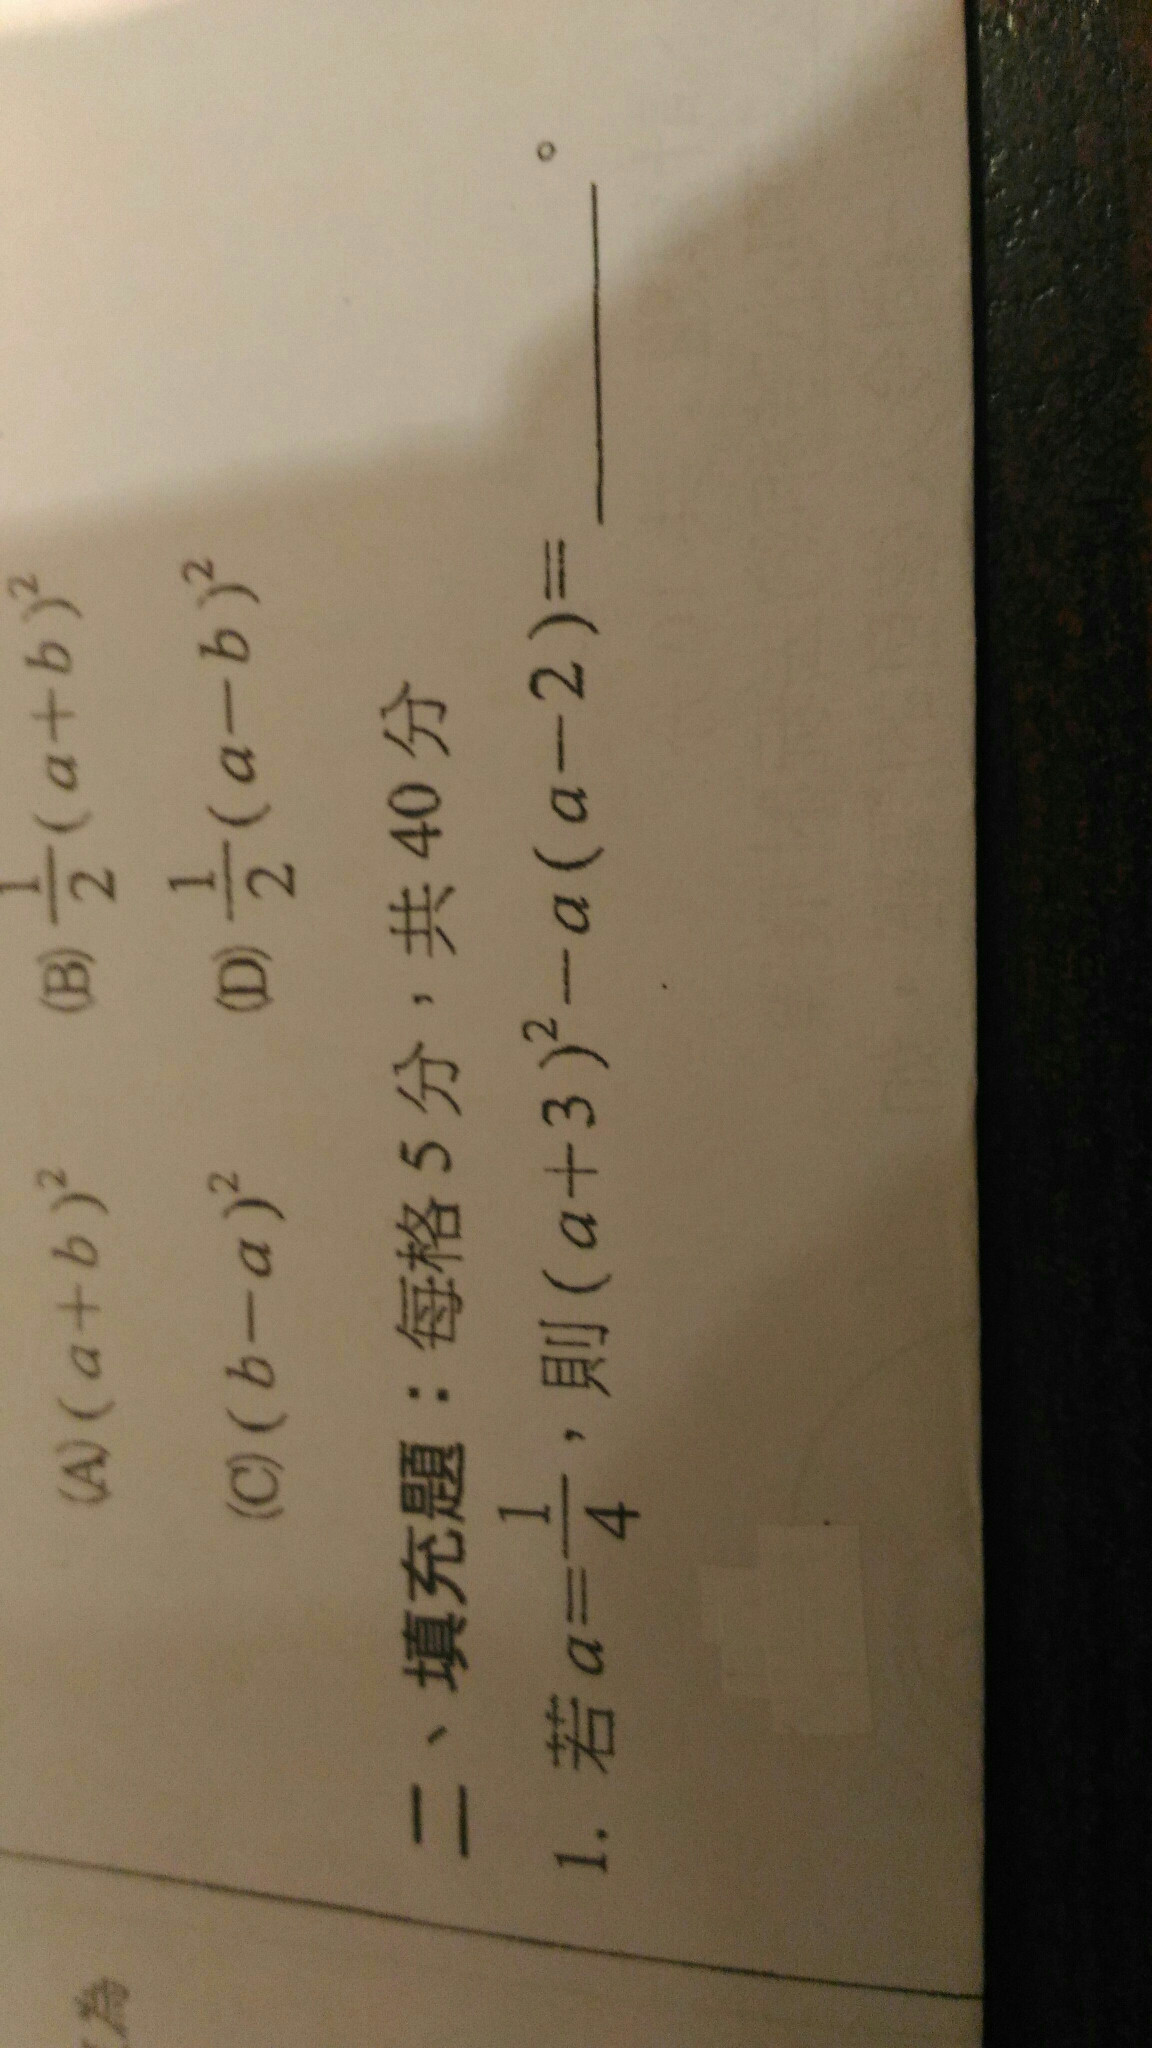 (A)(a+b)² (B)$\frac{1}{2}$(a+b)²
(C)(b−a)² (D)$\frac{1}{2}$(a−b)²
二、填充題：每格5分，共40分
1. 若a=$\frac{1}{4}$，則(a+3)²−a(a−2)=______。
為